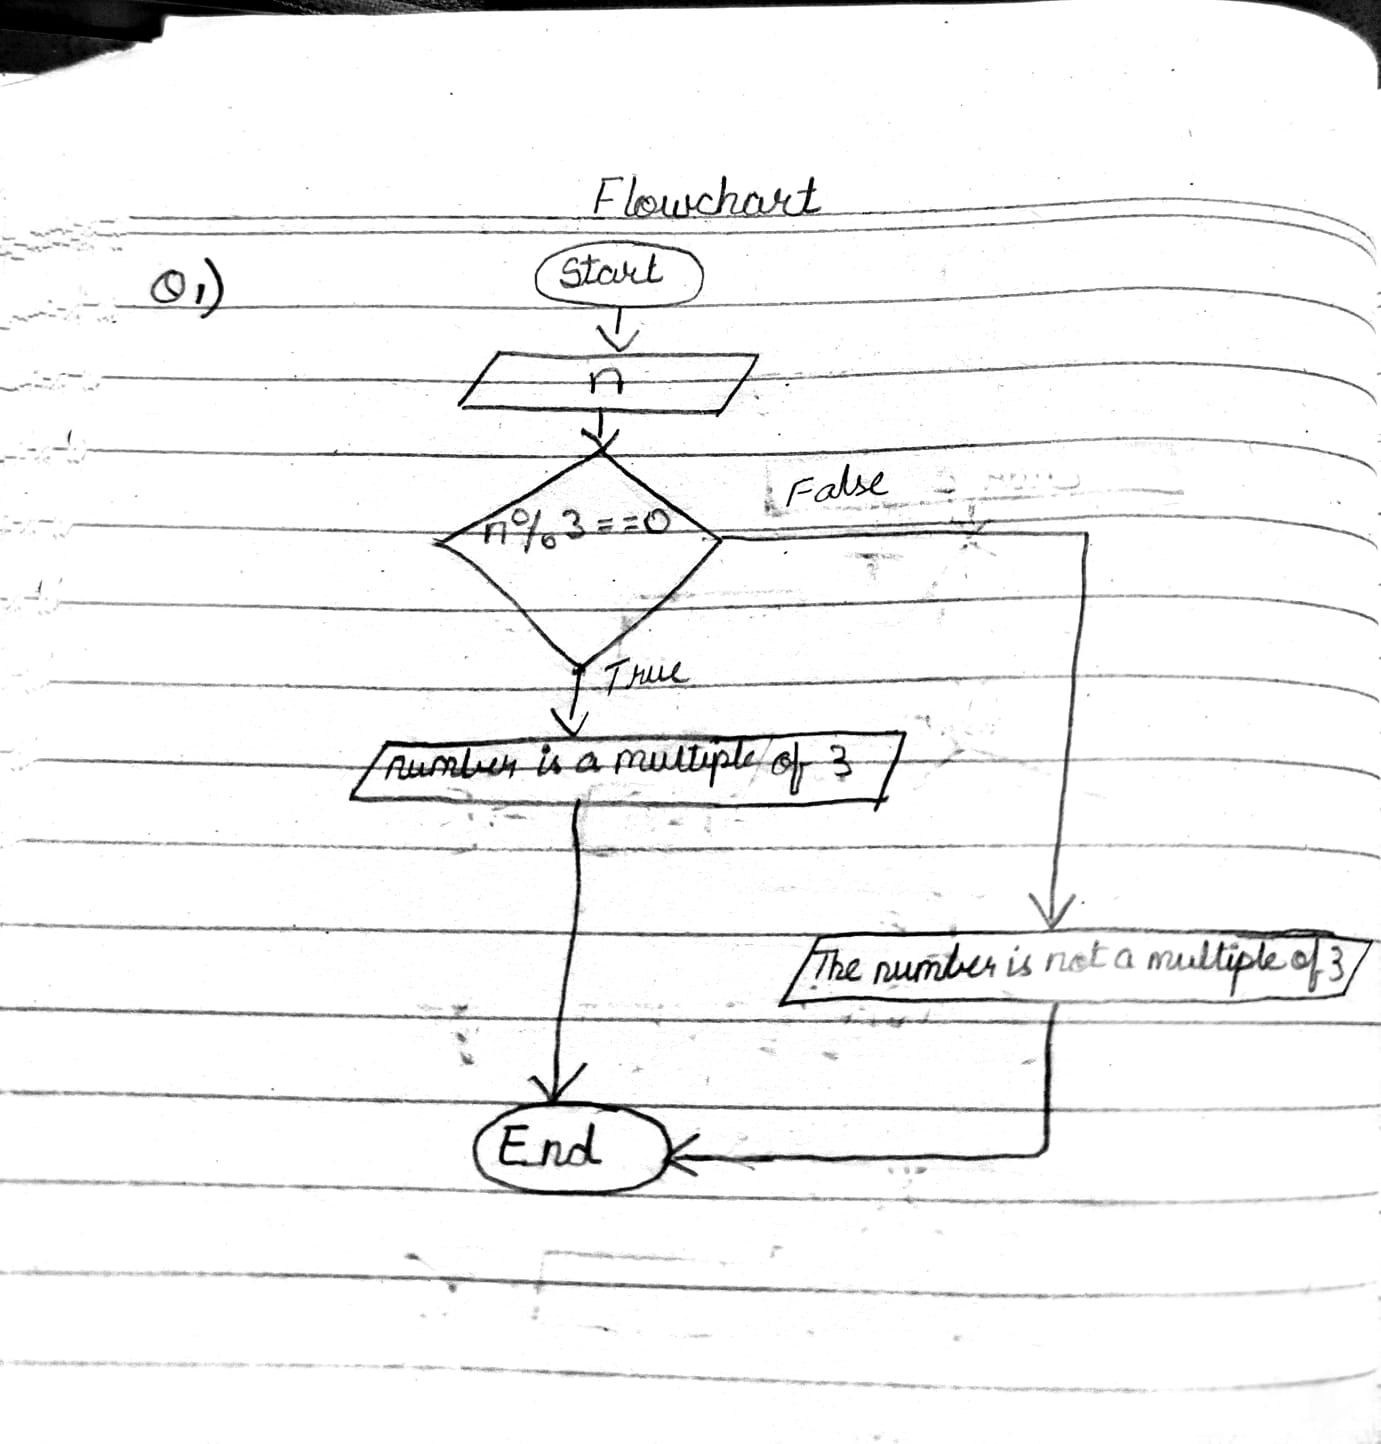 Flowchart
Q1)
Start
n
False
n%3==0
True
number is a multiple of 3
The number is not a multiple of 3
End